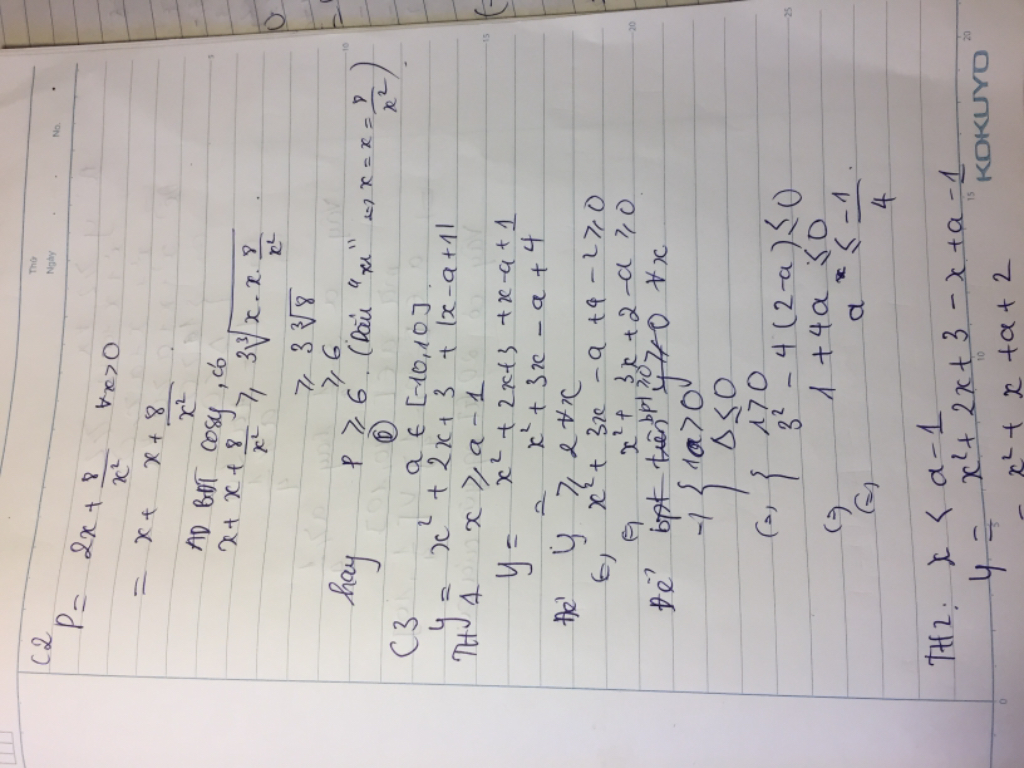 Thứ
Ngày
No.
C2
P = 2x + 8/x² ∀x>0
= x + x + 8/x²
AD BĐT cosy, có
x + x + 8/x² ≥ 3∛(x·x·8/x²)
≥ 3∛8
≥ 6
hay P ≥ 6. (Dấu "=" xr ↔ x = x = 8/x²).
C3 a ∈ [-10,10]
y = x² + 2x + 3 + |x-a+1|
TH1 x ≥ a-1
y = x² + 2x+3 + x-a+1
= x² + 3x - a + 4
Để y ≥ 2 ∀x
(=) x² + 3x - a + 4 - 2 ≥ 0
(=) x² + 3x + 2 - a ≥ 0
Để bpt ≥ 0 ∀x
{ a>0
Δ ≤ 0
(=) { 1>0
3² - 4(2-a) ≤ 0
(=) 1 + 4a ≤ 0
(=) a ≤ -1/4.
TH2. x < a-1
y = x² + 2x + 3 - x + a - 1
= x² + x + a + 2
5
10
15
20
25
0
5
10
15
20
KOKUYO